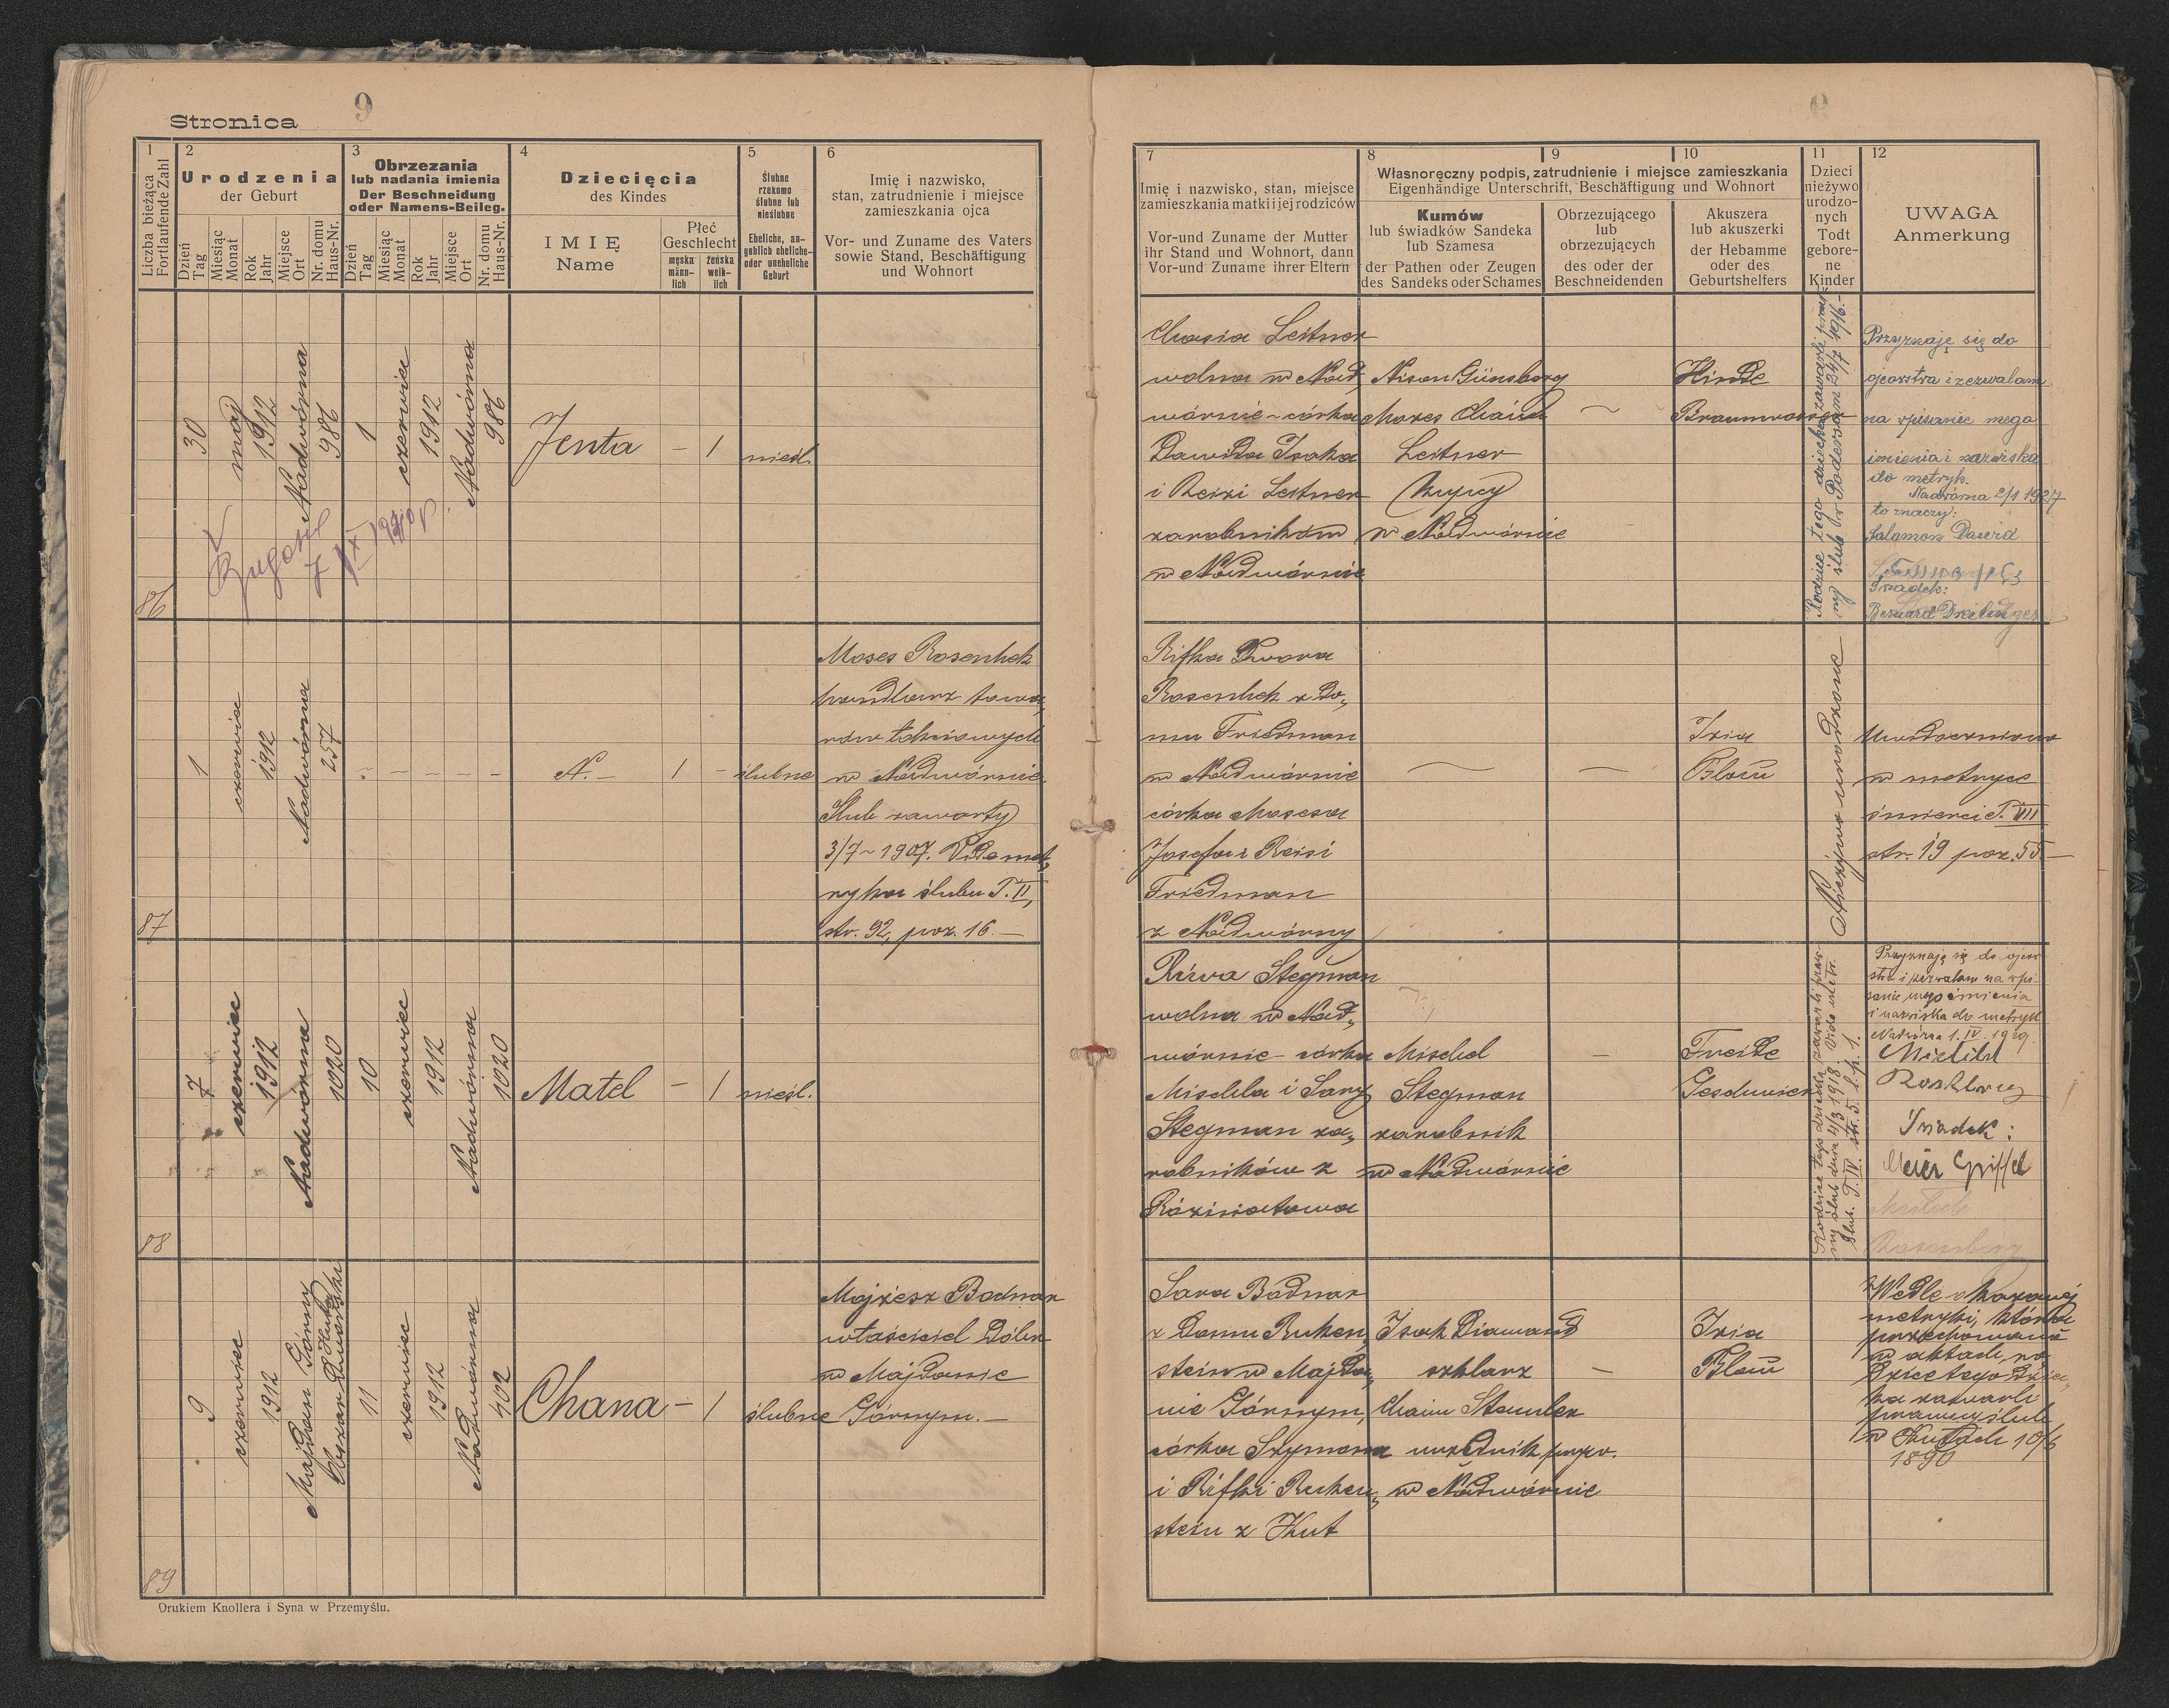 Stronica 9
1
Liczba bieżąca
Fortlaufende Zahl
2
Urodzenia
der Geburt
Dzień
Tag
Miesiąc
Monat
Rok
Jahr
Miejsce
Ort
Nr. domu
Haus-Nr.
3
Obrzezania
lub nadania imienia
Der Beschneidung
oder Namens-Beileg.
Dzień
Tag
Miesiąc
Monat
Rok
Jahr
Miejsce
Ort
Nr. domu
Haus-Nr.
4
Dziecięcia
des Kindes
IMIĘ
Name
Płeć
Geschlecht
męska
männ-
lich
żeńska
weib-
lich
5
Ślubne
rzekomo
ślubne lub
nieślubne
Eheliche, an-
geblich eheliche-
oder uneheliche
Geburt
6
Imię i nazwisko,
stan, zatrudnienie i miejsce
zamieszkania ojca
Vor- und Zuname des Vaters
sowie Stand, Beschäftigung
und Wohnort
7
Imię i nazwisko, stan, miejsce
zamieszkania matki i jej rodziców
Vor-und Zuname der Mutter
ihr Stand und Wohnort, dann
Vor-und Zuname ihrer Eltern
8
9
10
Własnoręczny podpis, zatrudnienie i miejsce zamieszkania
Eigenhändige Unterschrift, Beschäftigung und Wohnort
Kumów
lub świadków Sandeka
lub Szamesa
der Pathen oder Zeugen
des Sandeks oder Schames
Obrzezującego
lub
obrzezujących
des oder der
Beschneidenden
Akuszera
lub akuszerki
der Hebamme
oder des
Geburtshelfers
11
Dzieci
nieżywo
urodzo-
nych
Todt
gebore-
ne
Kinder
12
UWAGA
Anmerkung
86
30
maj
1912
Nadwórna
986
1
czerwiec
1912
Nadwórna
986
Jenta
– 1
nieśl.
Chasia Leitner
wolna w Nad,
wórnie – córka
Dawida Isaka
i Reizi Leitner
zarobników
w Nadwórnie
Nisan Günsberg
Mozes Chaim
Leitner
Kupcy
w Nadwórnie
Hinde
Rodzice tego dziecka zawarli praw-
ny ślub 24/7 1916.–
Przyznaję się do
ojcostwa i zezwalam
na wpisanie mego
imienia i nazwiska
do metryk.
Nadwórna 2/1 1927
to znaczy:
Salamon Dawid
Świadek:
87
1
czerwiec
1912
Nadwórna
257
– – – – –
N. –
1 –
ślubne
Moses Rosenhek
handlarz towa,
rów łokciowych
w Nadwórnie,
Ślub zawarty
3/7 – 1907. Vide met,
ryka ślubu T. II,
str. 92, poz. 16. –
Rifka Dwora
Rosenhek z do,
mu Friedman
w Nadwórnie
córka Mosesa
Josefa i Reisi
Friedman
z Nadwórny
Izia
Blau
Nieżywo urodzone
Uwidoczniono
w metryce
śmierci T. VII
str. 19 poz. 55 –
88
7
czerwiec
1912
Nadwórna
1020
10
czerwiec
1912
Nadwórna
1020
Matel
– 1
nieśl.
Riwa Stegman
wolna w Nad,
wórnie – córka
Mischla i Sary
Stegman za,
robników z
Rożniatowa
Mischel
Stegman
zarobnik
w Nadwórnie
Freide
Rodzice tego dziecka zawarli praw-
ny ślub dnia 4/3 1918. Vide metr.
ślub. T. IV. str. 5. l. p. 1.
Przyznaję się do ojco-
stwa i pozwalam na wpi-
sanie mego imienia
i nazwiska do metryk
Nadwórna 1. IV. 1929.
Świadek:
Meier Griffel
89
9
czerwiec
1912
Majdan Górny
11
czerwiec
1912
Nadwórna
402
Chana
– 1
ślubne
Mojżesz Bodnar
właściciel dóbr
w Majdanie
Górnym. –
Sara Bodnar
z domu Ruken,
stein w Majda,
nie Górnym,
córka Szymona
i Rifki Ruken,
stein z Kut
Isak Diamand
szklarz
Chaim Stamler
urzędnik pryw.
w Nadwórnie
Izia
Blau
Wedle okazanej
metryki, która
przechowana
w aktach, ro-
dzice tego dziec,
ka zawarli
prawny ślub
w Kutach 10/6
1890
Drukiem Knollera i Syna w Przemyślu.